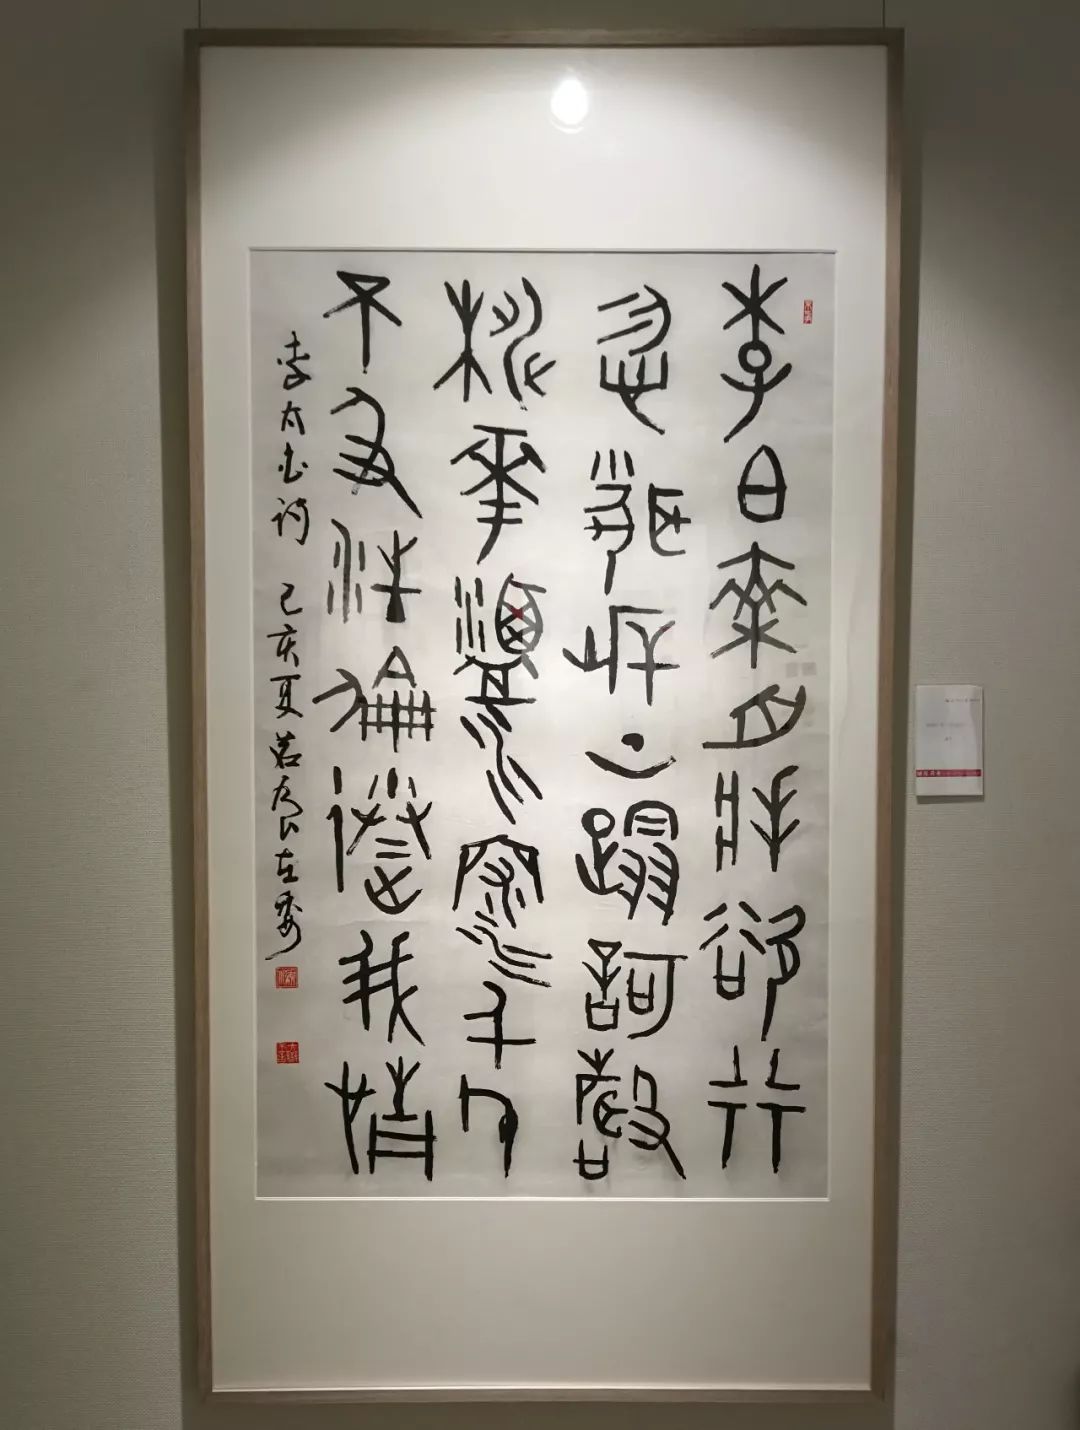 李白乘舟將欲行
忽聞岸上蹋歌聲
桃花潭水深千尺
不及汪倫送我情
李太白詩 己亥夏